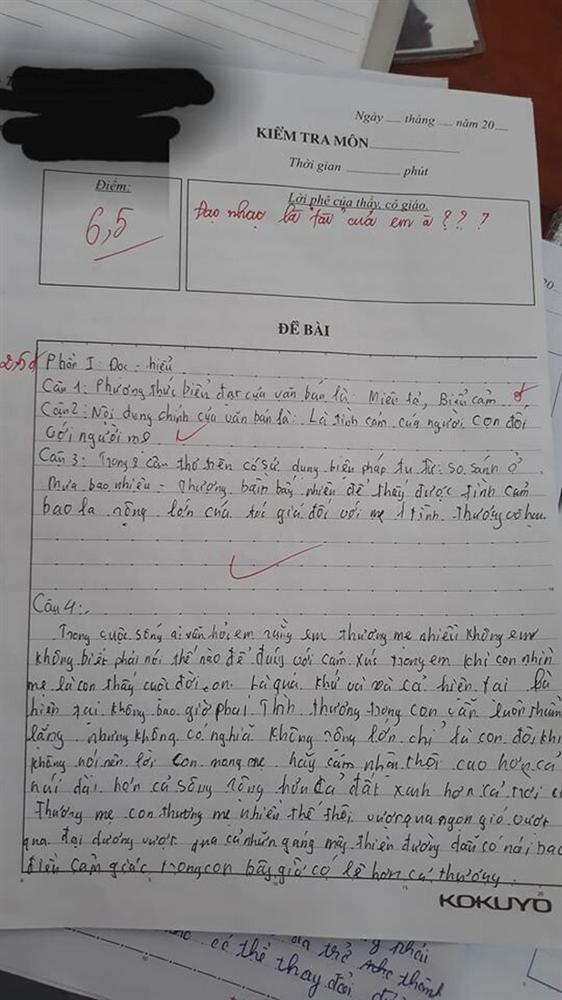 Ngày ___ tháng ___ năm 20__
KIỂM TRA MÔN
Thời gian ___ phút
Điểm:
6,5
Lời phê của thầy, cô giáo.
Đạo nhạo là "tài" của em à???
ĐỀ BÀI
2,5đ Phần I: Đọc - hiểu
Câu 1: Phương thức biểu đạt của văn bản là: Miêu tả, Biểu cảm
Câu 2: Nội dung chính của văn bản là: Là tình cảm của người con đối
với người mẹ
Câu 3: Trong 2 câu thơ trên có sử dụng biện pháp tu từ: so sánh ở
mưa bao nhiêu - thương bầm bấy nhiêu để thấy được tình cảm
bao la rộng lớn của tác giả đối với mẹ 1 tình thương vô hạn
Câu 4:
Trong cuộc sống ai vẫn hỏi em rằng em thương mẹ nhiều không em
không biết phải nói thế nào để đúng với cảm xúc trong em khi con nhìn
mẹ là con thấy cuộc đời con. Là quá khứ và và cả hiện tại là
hiện tại không bao giờ phai Tình thương trong con vẫn luôn thầm
lặng nhưng không có nghĩa không rộng lớn chỉ là con đôi khi
không nói nên lời con mong mẹ hãy cảm nhận thôi cao hơn cả
núi dài hơn cả sông rộng hơn cả đất xanh hơn cả trời
Thương mẹ con thương mẹ nhiều thế thôi vượt qua ngọn gió vượt
qua đại dương vượt qua cả những quáng mây thiên đường dẫu có nói bao
điều cảm giác trong con bây giờ có lẽ hơn cả thương.
KOKUYO
có thể thay đổi